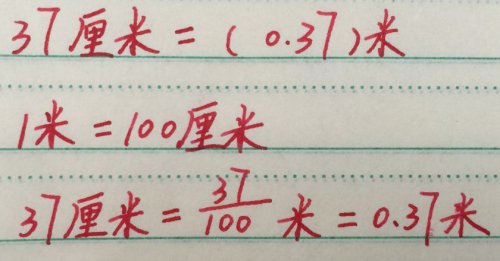 37厘米=(0.37)米
1米=100厘米
37厘米=37/100米=0.37米